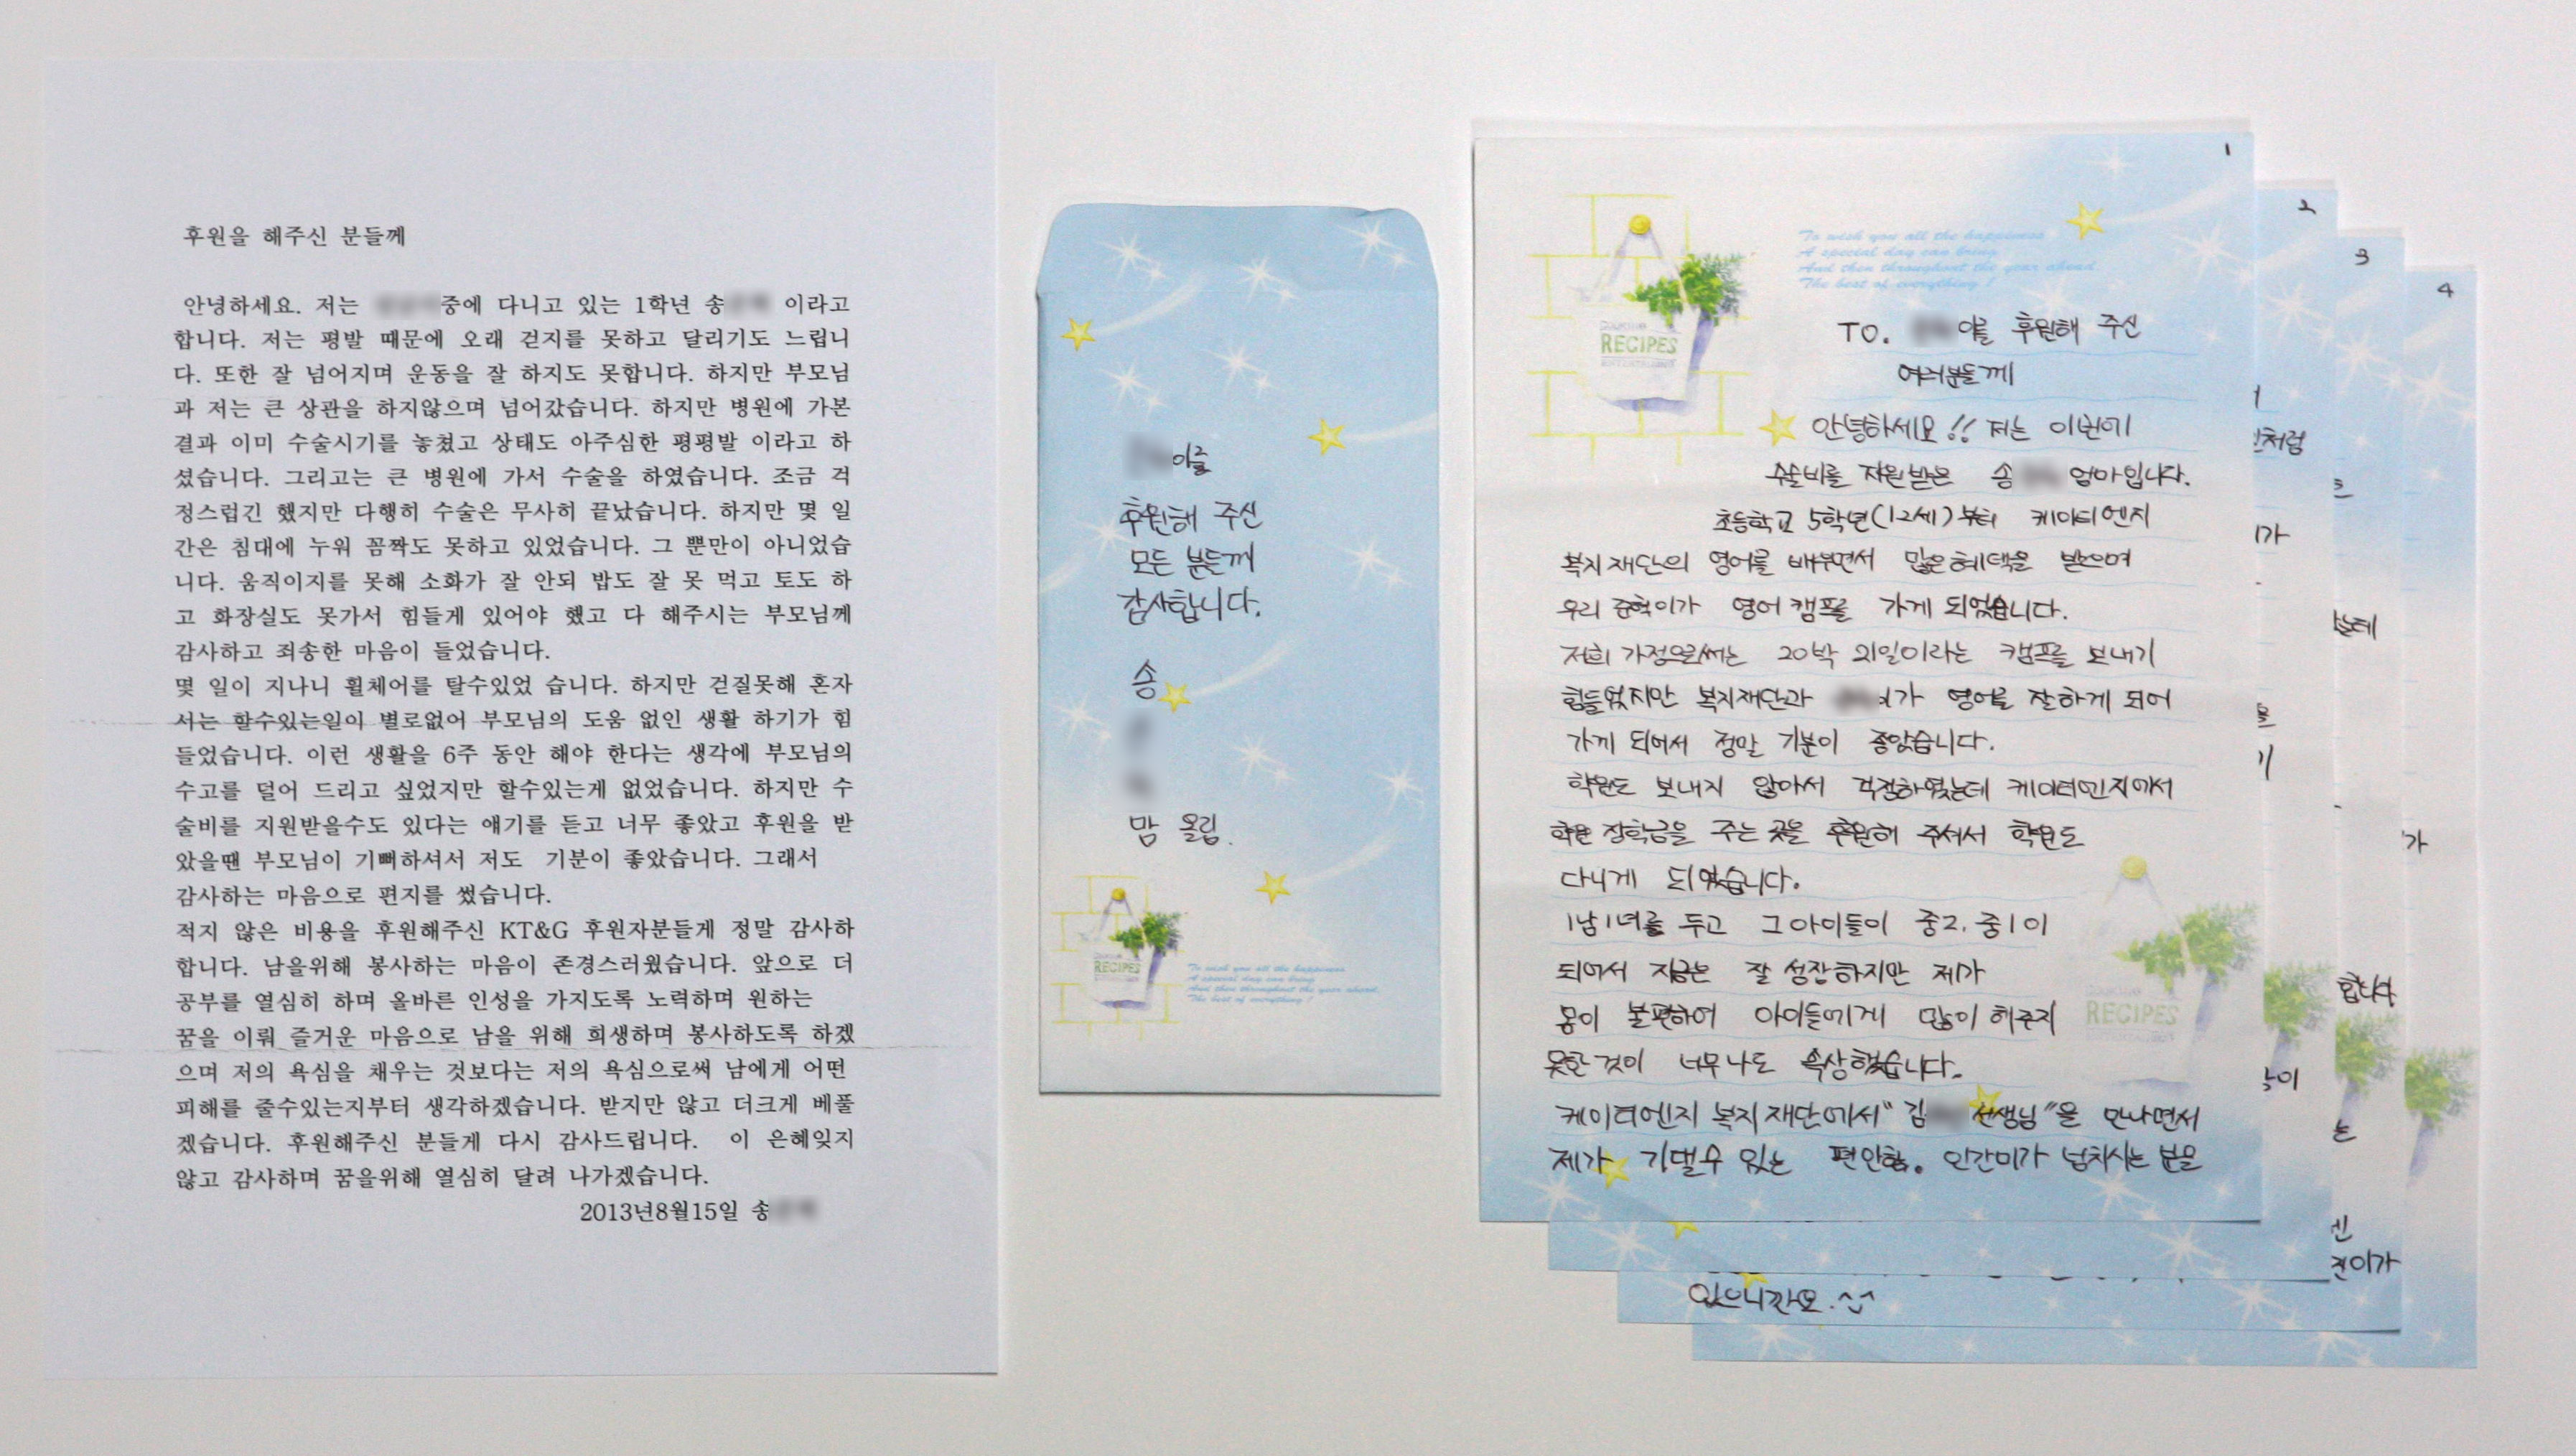 후원을 해주신 분들께
안녕하세요. 저는 중에 다니고 있는 1학년 송 이라고
합니다. 저는 평발 때문에 오래 걷지를 못하고 달리기도 느립니
다. 또한 잘 넘어지며 운동을 잘 하지도 못합니다. 하지만 부모님
과 저는 큰 상관을 하지않으며 넘어갔습니다. 하지만 병원에 가본
결과 이미 수술시기를 놓쳤고 상태도 아주심한 평평발 이라고 하
셨습니다. 그리고는 큰 병원에 가서 수술을 하였습니다. 조금 걱
정스럽긴 했지만 다행히 수술은 무사히 끝났습니다. 하지만 몇 일
간은 침대에 누워 꼼짝도 못하고 있었습니다. 그 뿐만이 아니었습
니다. 움직이지를 못해 소화가 잘 안되 밥도 잘 못 먹고 토도 하
고 화장실도 못가서 힘들게 있어야 했고 다 해주시는 부모님께
감사하고 죄송한 마음이 들었습니다.
몇 일이 지나니 휠체어를 탈수있었 습니다. 하지만 걷질못해 혼자
서는 할수있는일이 별로없어 부모님의 도움 없인 생활 하기가 힘
들었습니다. 이런 생활을 6주 동안 해야 한다는 생각에 부모님의
수고를 덜어 드리고 싶었지만 할수있는게 없었습니다. 하지만 수
술비를 지원받을수도 있다는 얘기를 듣고 너무 좋았고 후원을 받
았을땐 부모님이 기뻐하셔서 저도 기분이 좋았습니다. 그래서
감사하는 마음으로 편지를 썼습니다.
적지 않은 비용을 후원해주신 KT&G 후원자분들게 정말 감사하
합니다. 남을위해 봉사하는 마음이 존경스러웠습니다. 앞으로 더
공부를 열심히 하며 올바른 인성을 가지도록 노력하며 원하는
꿈을 이뤄 즐거운 마음으로 남을 위해 희생하며 봉사하도록 하겠
으며 저의 욕심을 채우는 것보다는 저의 욕심으로써 남에게 어떤
피해를 줄수있는지부터 생각하겠습니다. 받지만 않고 더크게 베풀
겠습니다. 후원해주신 분들게 다시 감사드립니다. 이 은혜잊지
않고 감사하며 꿈을위해 열심히 달려 나가겠습니다.
2013년8월15일 송
이를
후원해 주신
모든 분들께
감사합니다.
송
맘 올림.
RECIPES
To wish you all the happiness
A special day can bring
And then throughout the year ahead.
The best of everything!
1
To wish you all the happiness
A special day can bring
And then throughout the year ahead.
The best of everything!
RECIPES
TO. 이를 후원해 주신
여러분들께
안녕하세요!! 저는 이번에
수술비를 지원받은 송 엄마입니다.
초등학교 5학년(12세)부터 케이티엔지
복지재단의 영어를 배우면서 많은혜택을 받으며
우리 준혁이가 영어캠프를 가게 되었습니다.
저희 가정으로써는 20박 21일이라는 캠프를 보내기
힘들었지만 복지재단과 가 영어를 잘하게 되어
가게 되어서 정말 기분이 좋았습니다.
학원도 보내지 않아서 걱정하였는데 케이티엔지에서
학원 장학금을 주는 곳을 후원해 주셔서 학원도
다니게 되었습니다.
1남1녀를 두고 그아이들이 중2, 중1이
되어서 지금은 잘 성장하지만 제가
몸이 불편하여 아이들에게 많이 해주지
못한 것이 너무나도 속상했습니다.
케이티엔지 복지재단에서 "김 선생님"을 만나면서
제가 기댈수 있는 편안함. 인간미가 넘치시는 분을
RECIPES
2
처럼
가
3
는데
합니다
이가
있으니까요.^^
4
가